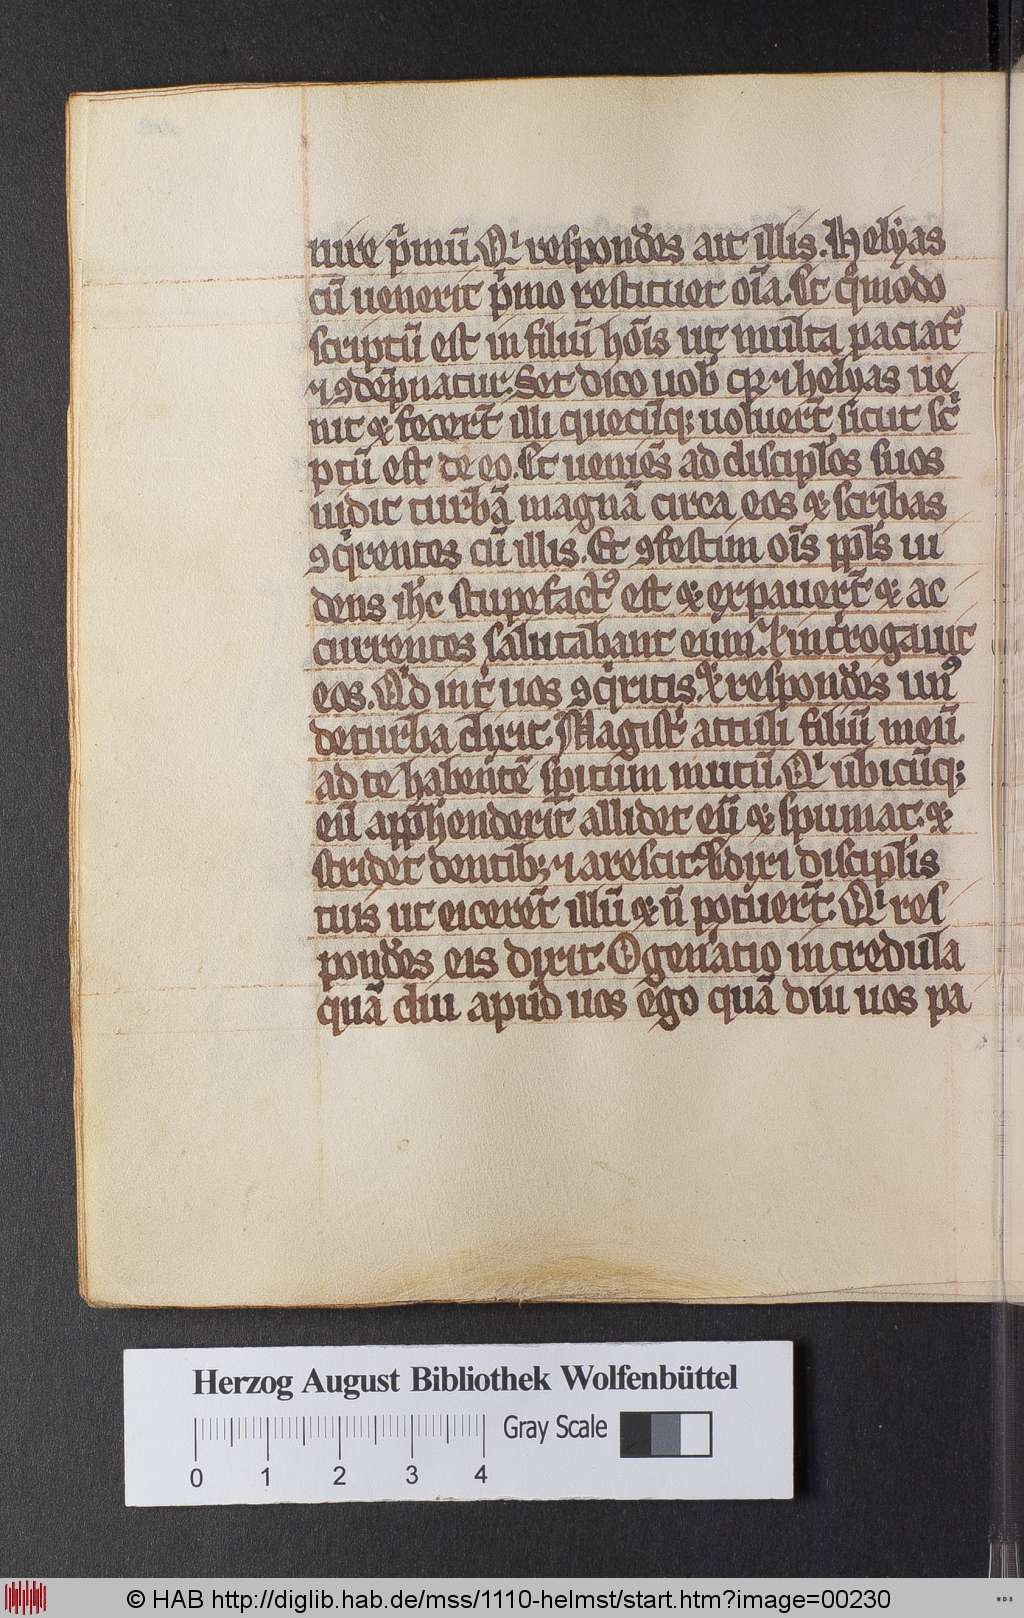 nire p̄mū. Qͥ respondēs ait illis. Helyas
cū uenerit pͥmo restituet oīa. Et qͦmodo
scriptū est in filiū hōis ut multa paciatᷣ
⁊ ꝯdēpnatur. Set dico uob̄ qꝛ ⁊ helyas ue
nit & fecer̄t illi quecūqꝫ uoluer̄t sicut scͥ
ptū est de eo. Et ueniēs ad discip̄los suos
uidit turbā magnā circa eos & scribas
ꝯqͥrentes cū illis. Et ꝯfestim oīs pp̄ls ui
dens ih̄c stupefactꝰ est & expauer̄t & ac
currentes salutabant eum. & int̄rogauit
eos. Qͥd int̄ uos ꝯqͥritis. & respondēs unꝰ
de turba dixit. Magist̄ attuli filiū meū
ad te habentē sp̄itum mutū. Qͥ ubicūqꝫ
eū app̄henderit allidet eū & spumat. &
stridet dentibꝫ ⁊ arescit. & dixi discip̄lis
tuis ut eicerēt illū & ñ potuer̄t. Qͥ res
pondēs eis dixit. O gen̄atio incredula
quā diu apud uos ego quā diu uos pa
Herzog August Bibliothek Wolfenbüttel
Gray Scale
0 1 2 3 4
© HAB http://diglib.hab.de/mss/1110-helmst/start.htm?image=00230